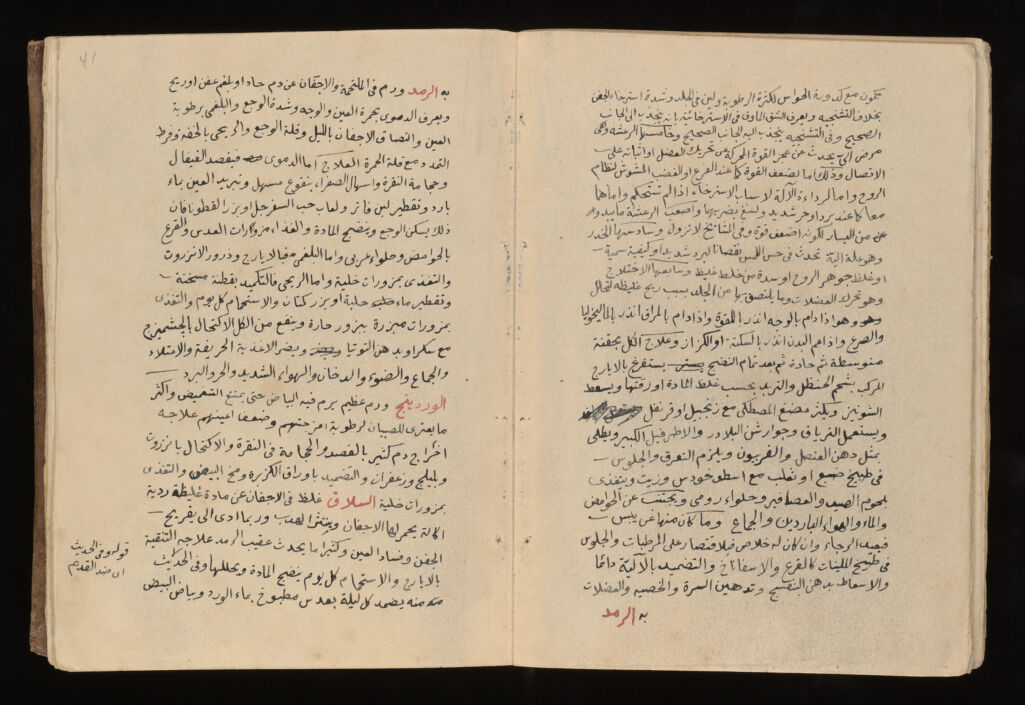 تكون مع كدورة الحواس لكثرة الرطوبة ولين في الجلد وشدة استرخاء الجفن
بخلاف التشنجية ويعرف الشق الماوف في الاسترخائية بانه يجذب الى الجانب
الصحيح وفي التشنجية يجذب اليه الجانب الصحيح وخامسها الرعشة وهي
مرض الي يحدث عن عجز القوة المحركة عن تحريك العضل او اثباته على
الاتصال وذلك اما لضعف القوة كما عند الفزع او الغضب المشوش لنظام
الروح واما لرداءة الآلة لاسباب الاسترخاء اذا لم تستحكم واماهما
معا كما عند برد او حر شديد ولسع يضر بهما واصعب الرعشة ما يبدو
من اليسار لكونه اضعف قوة وفي المشائخ لا تزول وسادسها الخدر
وهو علة الية تحدث في حس اللمس نقصانا لبرد شديد او كيفية سمية
او غلظ جوهر الروح او سدة من خلط غليظ وسابعها الاختلاج
وهو تحرك العضلات وما يلتصق بها من الجلد بسبب ريح غليظة تتحلل
وهو اذا دام بالوجه انذر باللقوة واذا دام بالمراق انذر بالماليخوليا
والصرع واذا عم البدن انذر بالسكتة او الكزاز وعلاج الكل بحقنة
متوسطة ثم حادة ثم بعد تمام النضج يستفرغ بالايارج
المركب بشحم الحنظل والتربد بحسب غلظ المادة ورقتها ويسعط
الشونيز ويكثر مضغ المصطكى مع زنجبيل او قرنفل
ويستعمل الترياق وجوارش البلادر والاطريفل الكبير ويطلى
بمثل دهن العنصل والفربيون ويلزم التعرق والجلوس
في طبيخ ضبع او ثعلب مع اسطوخودس وزيت ويتغذى
بلحوم الصيد والعصافير وحلواء رومي ويجتنب عن الحوامض
والماء والهواء الباردين والجماع وما كان منها عن يبس
فبعيد الرجاء وان كان له خلاص فبالاقتصار على المرطبات والجلوس
في طبيخ الملينات كالقرع والاسفاناخ والتضميد بالآلية دائما
والاسعاط بدهن البنفسج وتدهين السرة والخصية والعضلات
به الرمد
41
به الرمد ورم في الملتحمة والاجفان عن دم حاد او بلغم عفن او ريح
ويعرف الدموي بحمرة العين والوجه وشدة الوجع والبلغمي برطوبة
العين والتصاق الاجفان بالليل وقلة الوجع والريحي بالخفة وفرط
التمدد مع قلة الحمرة العلاج اما الدموي فبفصد القيفال
وحجامة النقرة واسهال الصفراء بنقوع مسهل وتبريد العين بماء
بارد وتقطير لبن فاتر ولعاب حب السفرجل او بزر القطونا فان
ذلك يسكن الوجع وينضج المادة والغذاء مزورات العدس والقرع
بالحوامض وحلواء عربي واما البلغمي فبالايارج وذرور الانزروت
والتغذى بمزورات خلية واما الريحي فالتكميد بقطنة مسخنة
وتقطير ماء حلبة او بزر كتان والاستحمام كل يوم والتغذى
بمزورات مبزرة ببزور حارة وينفع من الكل الاكتحال بالجشميزج
مع سكر او بدهن التوتيا ويضر الاغذية الحريفة والامتلاء
والجماع والضوء والدخان والهواء الشديد والحر والبرد
الوردينج ورم عظيم يرم فيه البياض حتى يمنع التغميض واكثر
ما يعترى للصبيان لرطوبة امزجتهم وضعف اعينهم علاجه
اخراج دم كثير بالفصد والحجامة في النقرة والاكتحال بانزروت
واهليلج وزعفران والتضميد باوراق الكزبرة ومح البيض والتغذى
بمزورات خلية السلاق غلظ في الاجفان عن مادة غليظة ردية
اكالة يحمر لها الاجفان وينتثر الهدب وربما ادى الى تقريح
الجفن وفساد العين وكثيرا ما يحدث عقيب الرمد علاجه التنقية
بالايارج والاستحمام كل يوم ينضج المادة ويحللها وفي الحديث
منه يضمد كل ليلة بعدس مطبوخ بماء الورد وبياض البيض
قوله وفي الحديث
اى ضد القديم